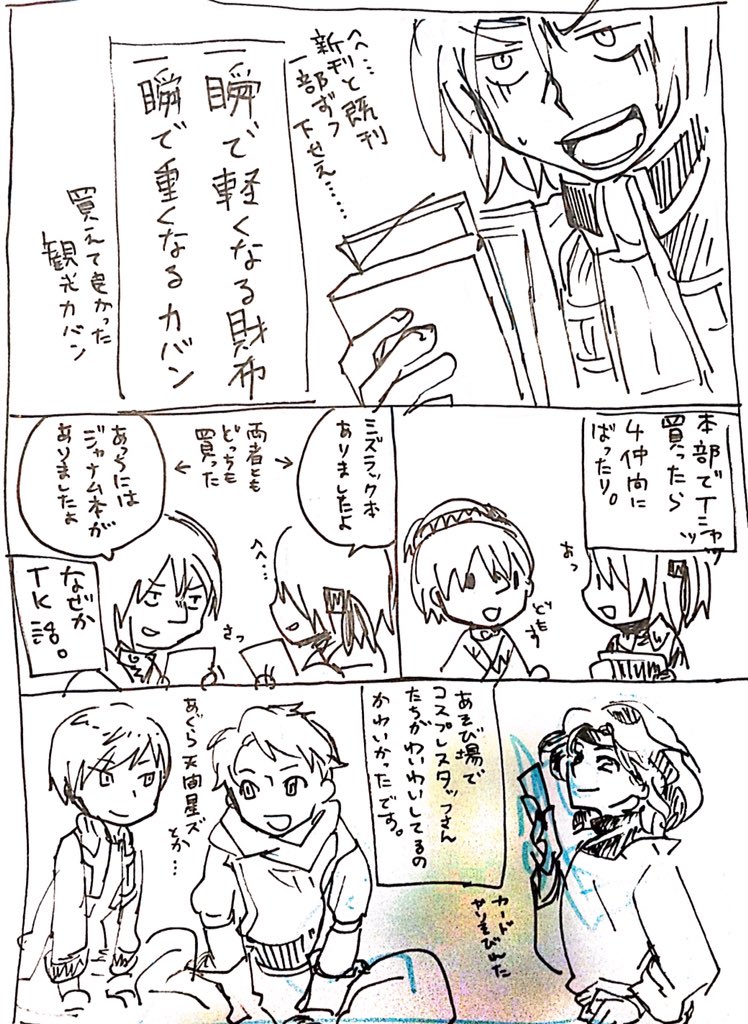 へへ…
新刊と既刊
一部ずつ
下せえ……
一瞬で軽くなる財布
一瞬で重くなるカバン
買えて良かった
観光カバン
本部でTシャツ
買ったら
4仲間に
ばったり。
あっ
どもす
ミズラック本
ありましたよ
両者とも
どっちも
買った
あちらには
ジャナム本が
ありましたよ
へへ…
さっ
なぜか
TK語。
あそび場で
コスプレスタッフさん
たちがわいわいしてるの
かわいかったです。
カード
やりそびれた
あぐら天間星ズ
とか…